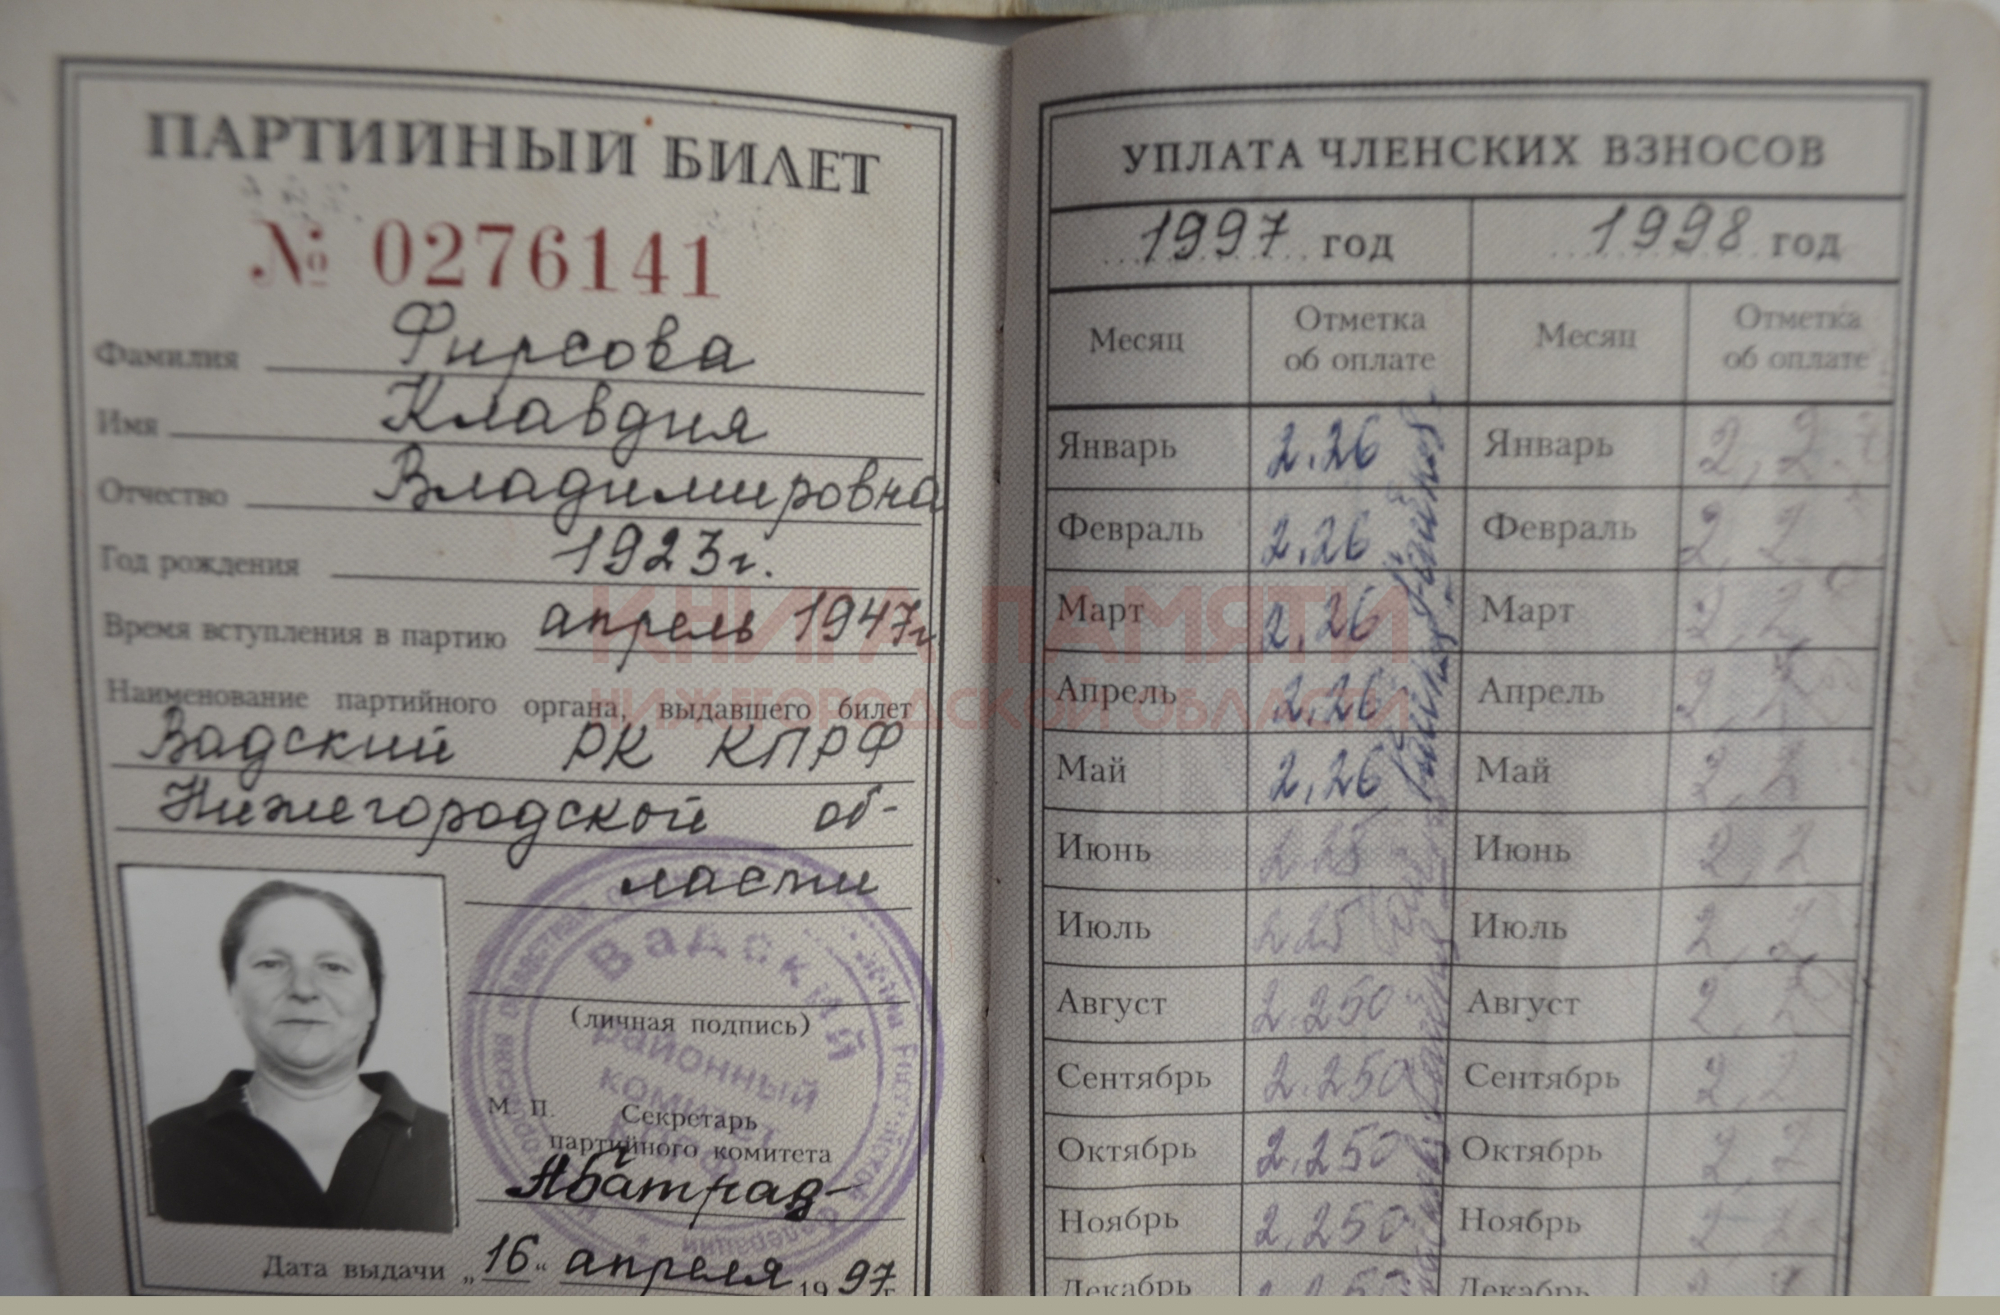 ПАРТИЙНЫЙ БИЛЕТ
№ 0276141
Фамилия Фирсова
Имя Клавдия
Отчество Владимировна
Год рождения 1923г.
Время вступления в партию апрель 1947г
Наименование партийного органа, выдавшего билет
Вадский РК КПРФ
Нижегородской об-
ласти
(личная подпись)
Вадский
районный
комитет
М. П. Секретарь
партийного комитета
Дата выдачи „16“ апреля 1997г
УПЛАТА ЧЛЕНСКИХ ВЗНОСОВ
1997 год 1998 год
Месяц Отметка об оплате Месяц Отметка об оплате
Январь 2.26 Январь
Февраль 2.26 Февраль
Март 2.26 Март
Апрель 2.26 Апрель
Май 2.26 Май
Июнь 2.25 Июнь 2,2
Июль 2.25 Июль 2,2
Август 2.250 Август
Сентябрь 2.250 Сентябрь 2,2
Октябрь 2.250 Октябрь 2,2
Ноябрь 2.250 Ноябрь
Декабрь Декабрь
КНИГА ПАМЯТИ
НИЖЕГОРОДСКОЙ ОБЛАСТИ